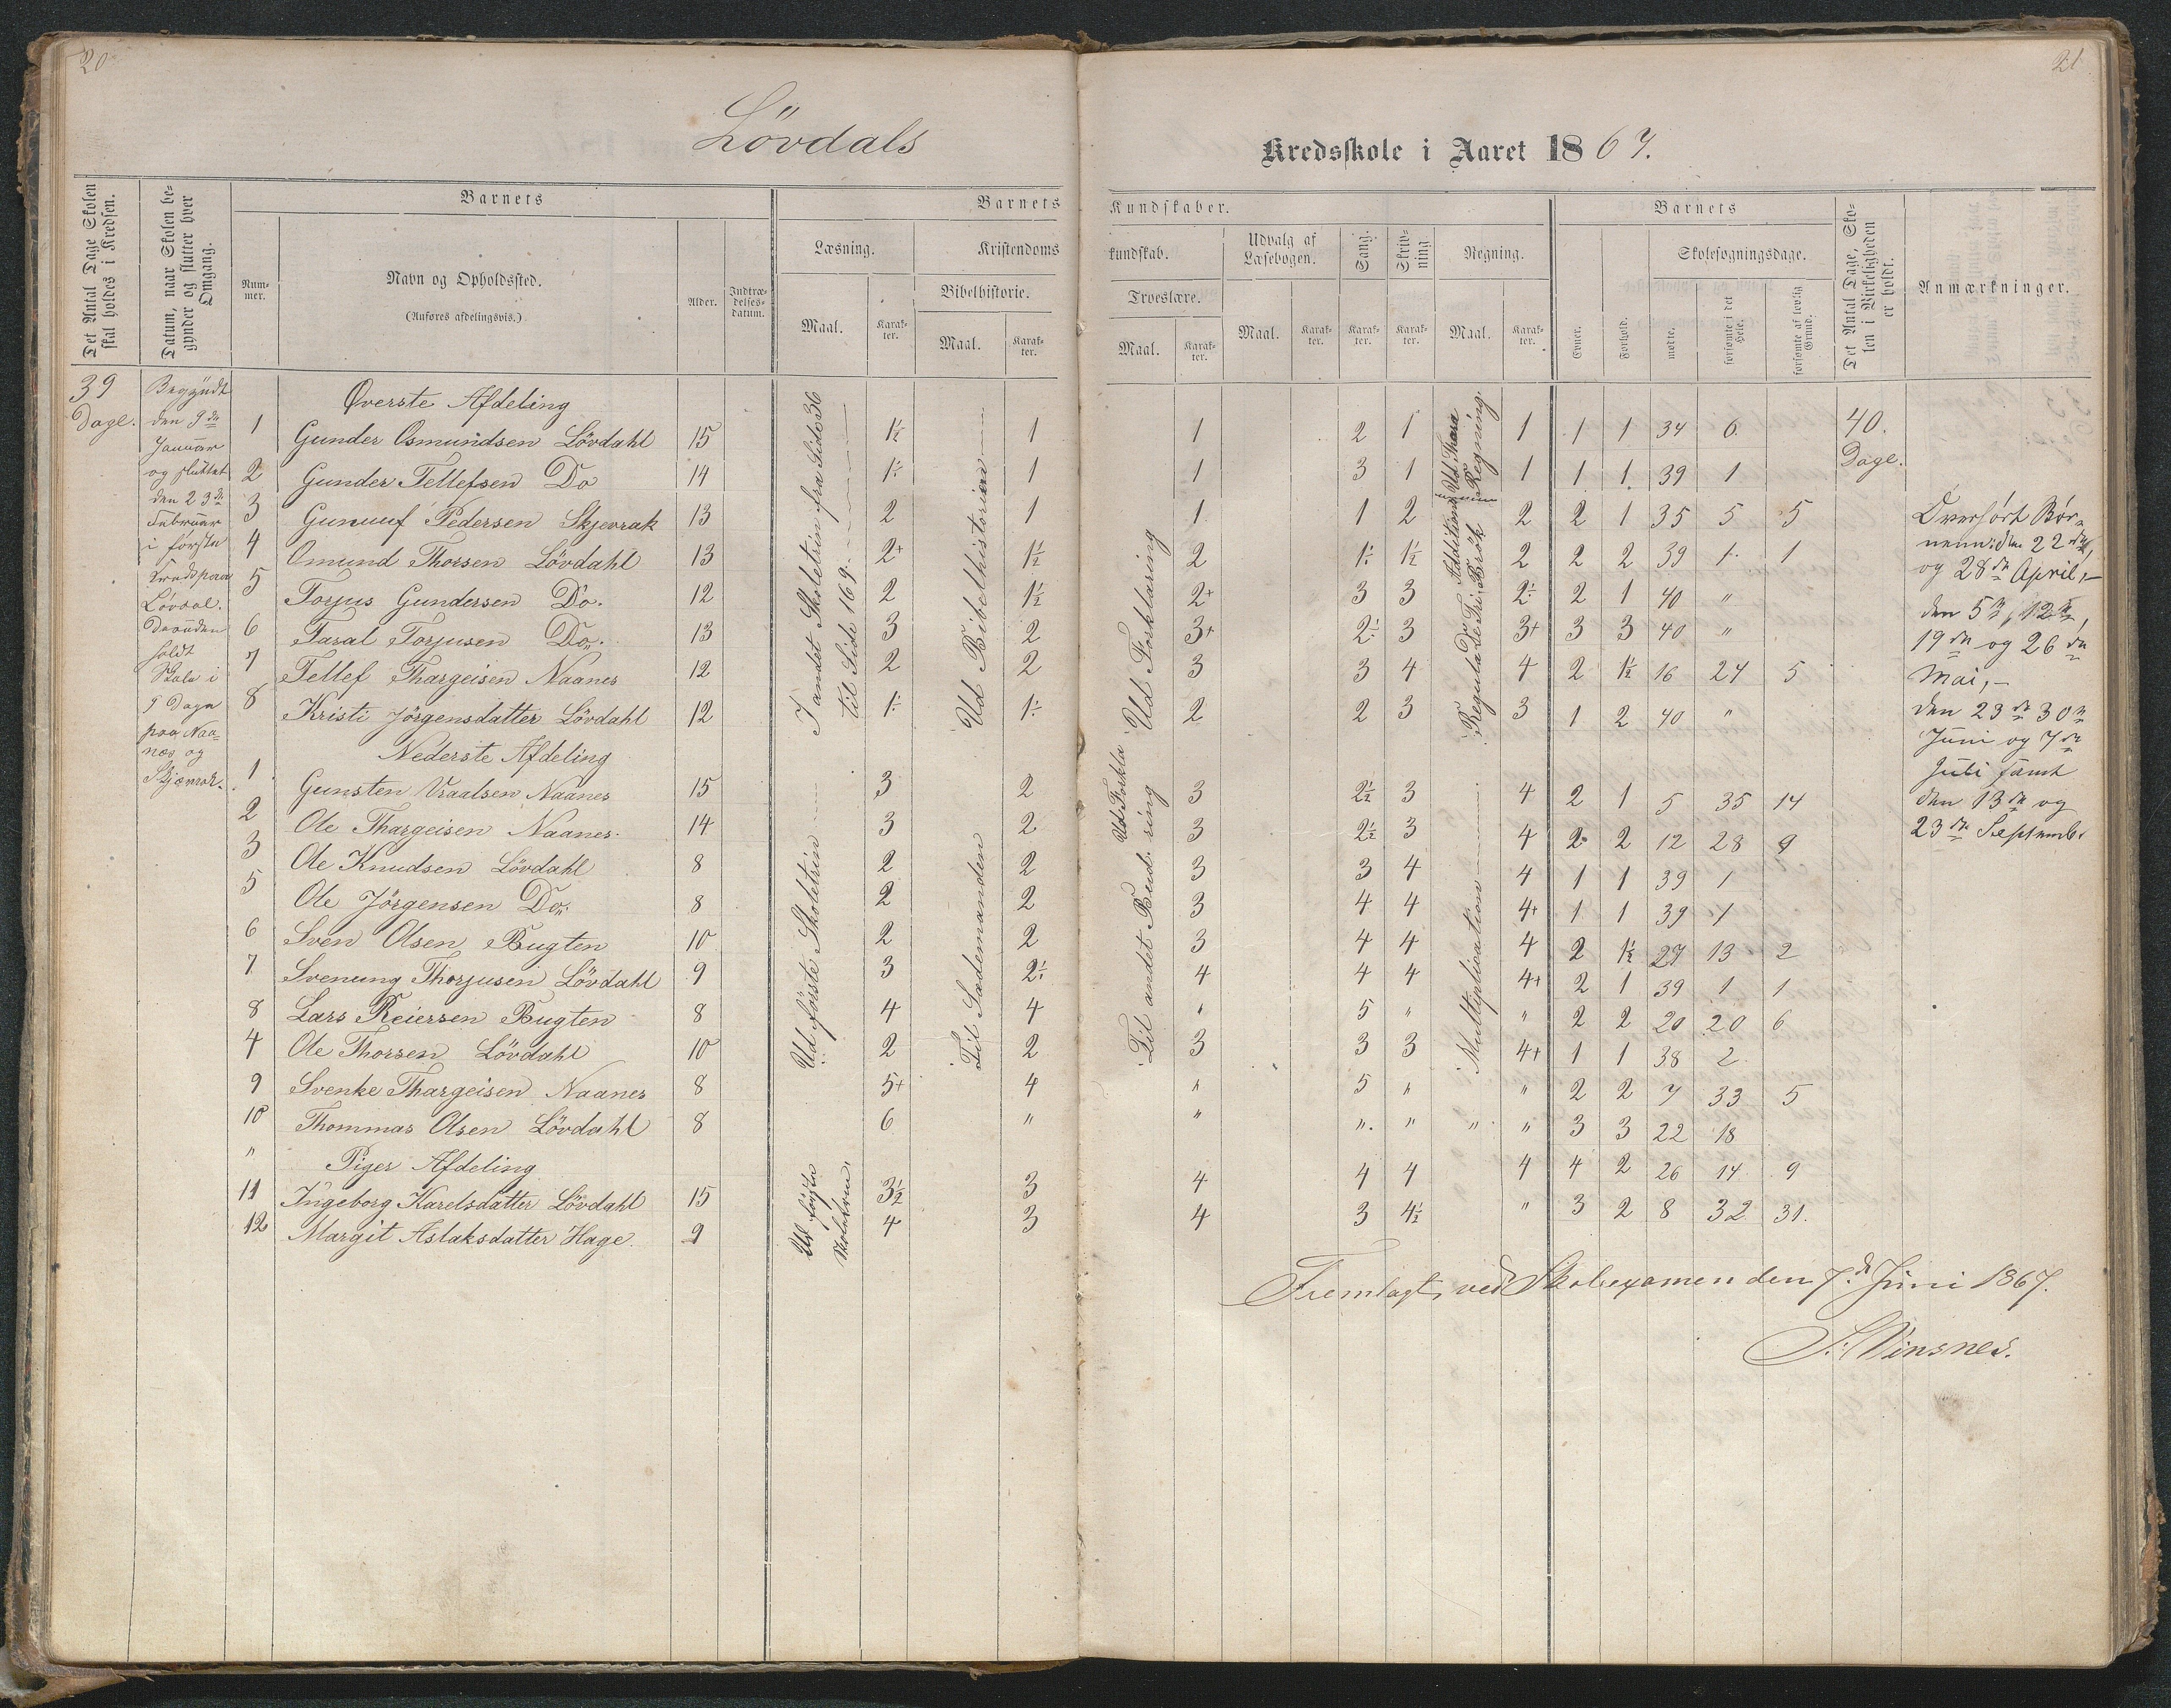 20
21
Lövdals
Kredsskole i Aaret 1867.
Det Antal Dage Skolen skal holdes i Kredsen.
Datum, naar Skolen begynder og slutter hver Omgang.
Barnets
Nummer.
Navn og Opholdssted.
(Anføres afdelingsvis.)
Alder.
Indtrædelsesdatum.
Barnets Kundskaber.
Læsning.
Kristendomskundskab.
Bibelhistorie.
Troeslære.
Udvalg af Læsebogen.
Sang.
Skrivning
Regning.
Maal. Karakter. Maal. Karakter. Maal. Karakter. Maal. Karakter. Karakter. Karakter. Maal. Karakter.
Barnets
Evner.
Forhold.
Skolesøgningsdage.
mødte.
forsømte i det Hele.
forsømte af lovlig Grund.
Det Antal Dage, Skolen i Virkeligheden er holdt.
Anmærkninger.
39
Dage.
Begyndt
den 9de
Januar
og sluttet
den 23de
Februar
i første
Løvdal.
holdt
Skole i
9 Dage
paa Naa-
næs og
Øverste Afdeling
1 Gunder Osmundsen Lövdahl 15 1½ 1 1 2 1 1 1 1 34 6
2 Gunder Tellefsen Do 14 1÷ 1 1 3 1 1 1 1 39 1
3 Gunuuf Pedersen Skjevrak 13 2 1 1 1 2 2 2 1 35 5 5
4 Omund Thorsen Lövdahl 13 2+ 1½ 2 1÷ 1½ 2 2 2 39 1 1
5 Torjus Gundersen Do. 12 2 1½ 2+ 3 3 2÷ 2 1 40 "
6 Taral Torjusen Do. 13 3 2 3+ 2÷ 3 3+ 3 3 40 "
7 Tellef Thargeisen Naanes 12 2 2 3 3 4 4 2 1½ 16 24 5
8 Kristi Jörgensdatter Lövdahl 12 1÷ 1÷ 2 2 3 3 1 2 40 "
Nederste Afdeling
1 Gunsten Vraalsen Naanes 15 3 2 3 2½ 3 4 2 1 5 35 14
2 Ole Thargeisen Naanes. 14 3 2 3 2½ 3 4 2 2 12 28 9
3 Ole Knudsen Lövdahl 8 2 2 3 3 4 4 1 1 39 1
5 Ole Jörgensen Do. 8 2 2 3 4 4 4+ 1 1 39 1
6 Sven Olsen Bugten 10 2 2 3 4 4 4 2 1½ 27 13 2
7 Svenung Thorjusen Lövdahl 9 3 2÷ 4 4 4 4+ 2 1 39 1 1
8 Lars Reiersen Bugten 8 4 4 " 5 " " 2 2 20 20 6
4 Ole Thorsen Lövdahl 10 2 2 3 3 3 4+ 1 1 38 2
9 Svenke Thargeisen Naanes 8 5+ 4 " 5 " " 2 2 7 33 5
10 Thommas Olsen Lövdahl 8 6 " " " " " " 3 3 22 18
" Piger Afdeling
11 Ingeborg Karelsdatter Lövdahl 15 3½ 3 4 4 4 4 4 2 26 14 9
12 Margit Aslaksdatter Hage. 9 4 3 4 3 4½ " 3 2 8 32 31.
I andet Skoletrin fra Side 36
til Side 169.
Ud Bibelhistorien
Ud Forklaring
Regula de Tri
Ud første Skoletrin
Til Sædemanden
Til andet Bud
Ud Forklaring
Multiplication
40.
Dage.
Overhørt Bør-
nene: den 22de,
og 28de April,—
den 5te, 12te,
19de og 26de
Mai,—
den 23de 30te
Juni og 7de
Juli samt
den 13de og
23de Septemb.
Fremlagt ved Skoleexamen den 7de Juni 1867.
S. Vinsnes.